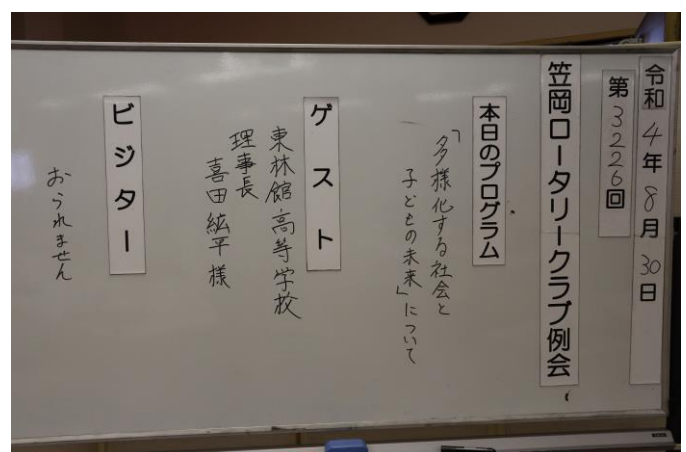 令和4年8月30日
第3226回
笠岡ロータリークラブ例会
本日のプログラム
「多様化する社会と
子どもの未来」について
ゲスト
東林館高等学校
理事長
喜田紘平様
ビジター
おられません